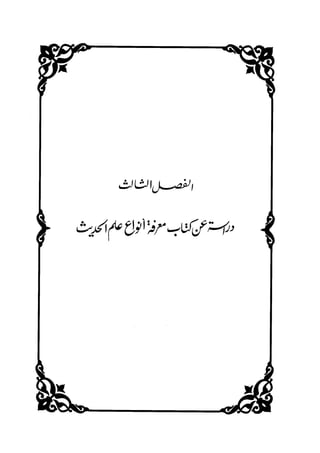 الفصل الثالث
دراسة عن كتاب معرفة أنواع علم الحديث